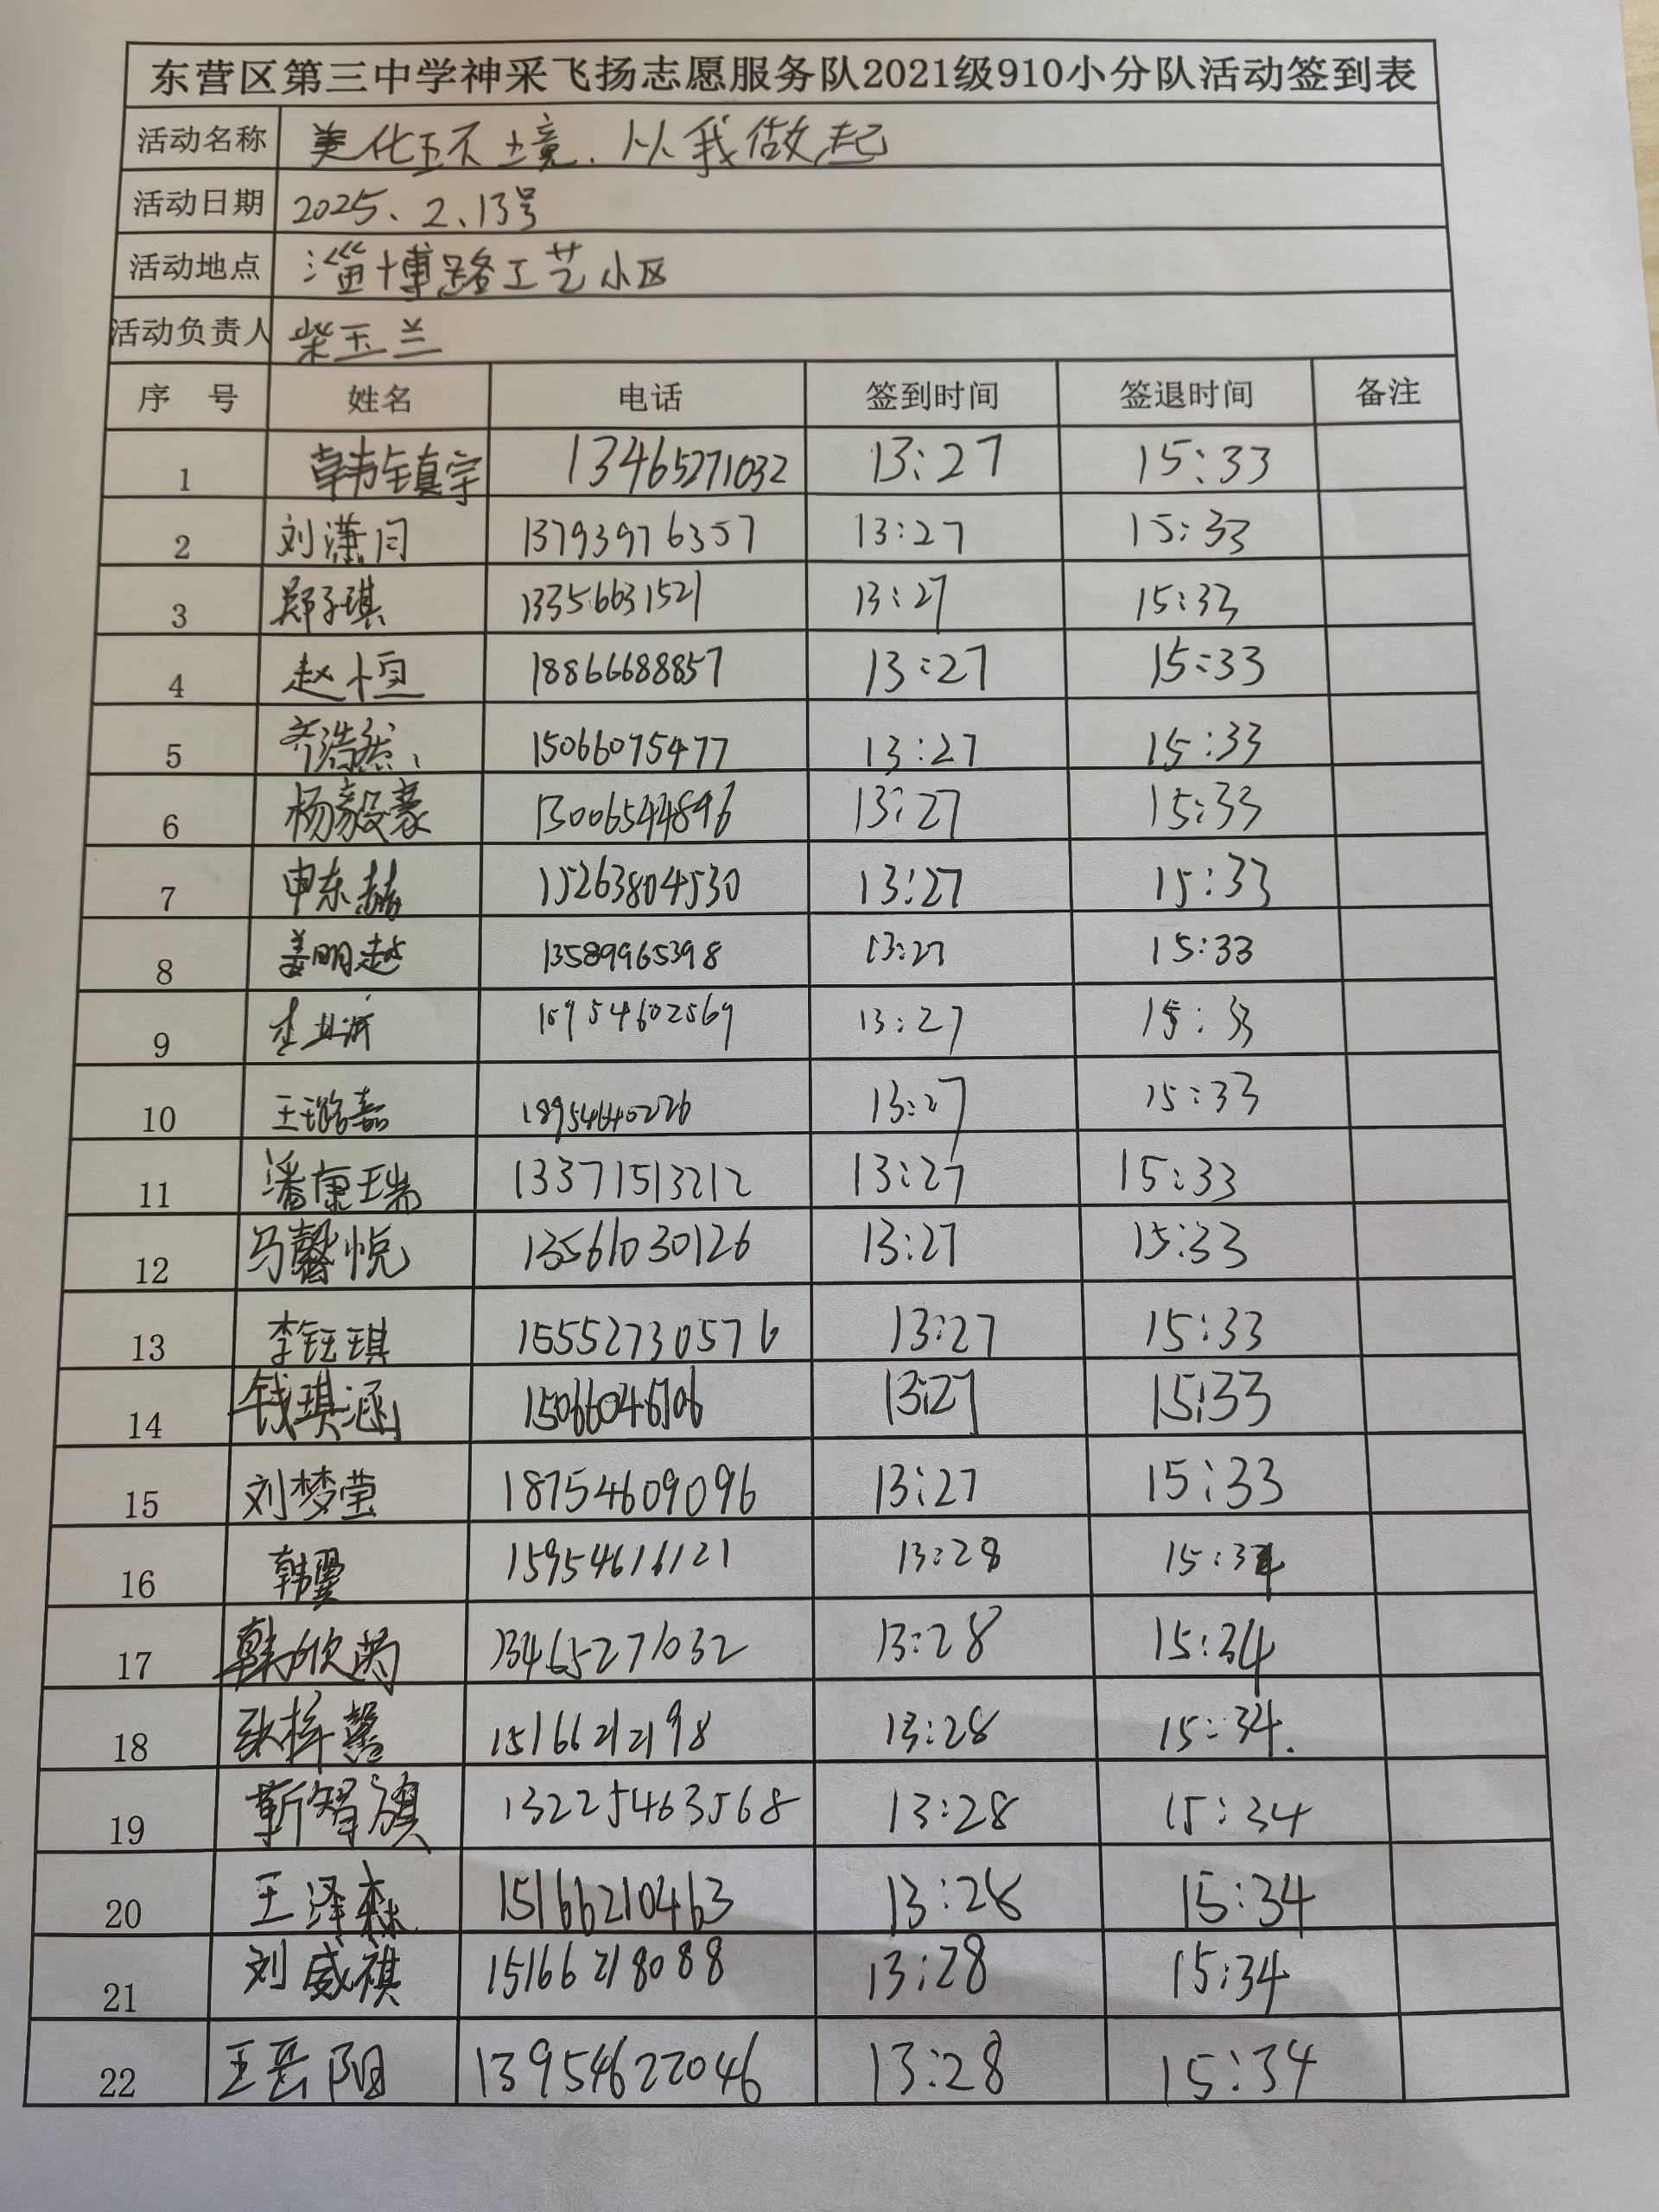 东营区第三中学神采飞扬志愿服务队2021级910小分队活动签到表
活动名称 美化环境、从我做起
活动日期 2025、2、13号
活动地点 淄博路工艺小区
活动负责人 柴玉兰
序 号 姓名 电话 签到时间 签退时间 备注
1 韩镇宇 13465271032 13:27 15:33
2 刘潇闩 13793976357 13:27 15:33
3 郑子琪 13356631521 13:27 15:33
4 赵恒 18866688857 13:27 15:33
5 齐浩然 15066075477 13:27 15:33
6 杨毅豪 13006544896 13:27 15:33
7 申东赫 15263804530 13:27 15:33
8 姜明越 13589965398 13:27 15:33
9 13:27 15:33
10 王璐嘉 18954640226 13:27 15:33
11 潘康瑞 13371513212 13:27 15:33
12 马馨悦 13561030126 13:27 15:33
13 李钰琪 15552730576 13:27 15:33
14 钱琪涵 15066046706 13:27 15:33
15 刘梦莹 18754609096 13:27 15:33
16 15954616121 13:28 15:34
17 韩欣芮 13465271032 13:28 15:34
18 张梓馨 15166212198 13:28 15:34.
19 靳智旗 13225463568 13:28 15:34
20 王泽森 15166210463 13:28 15:34
21 刘威祺 15166218088 13:28 15:34
22 王岳阳 13954622046 13:28 15:34